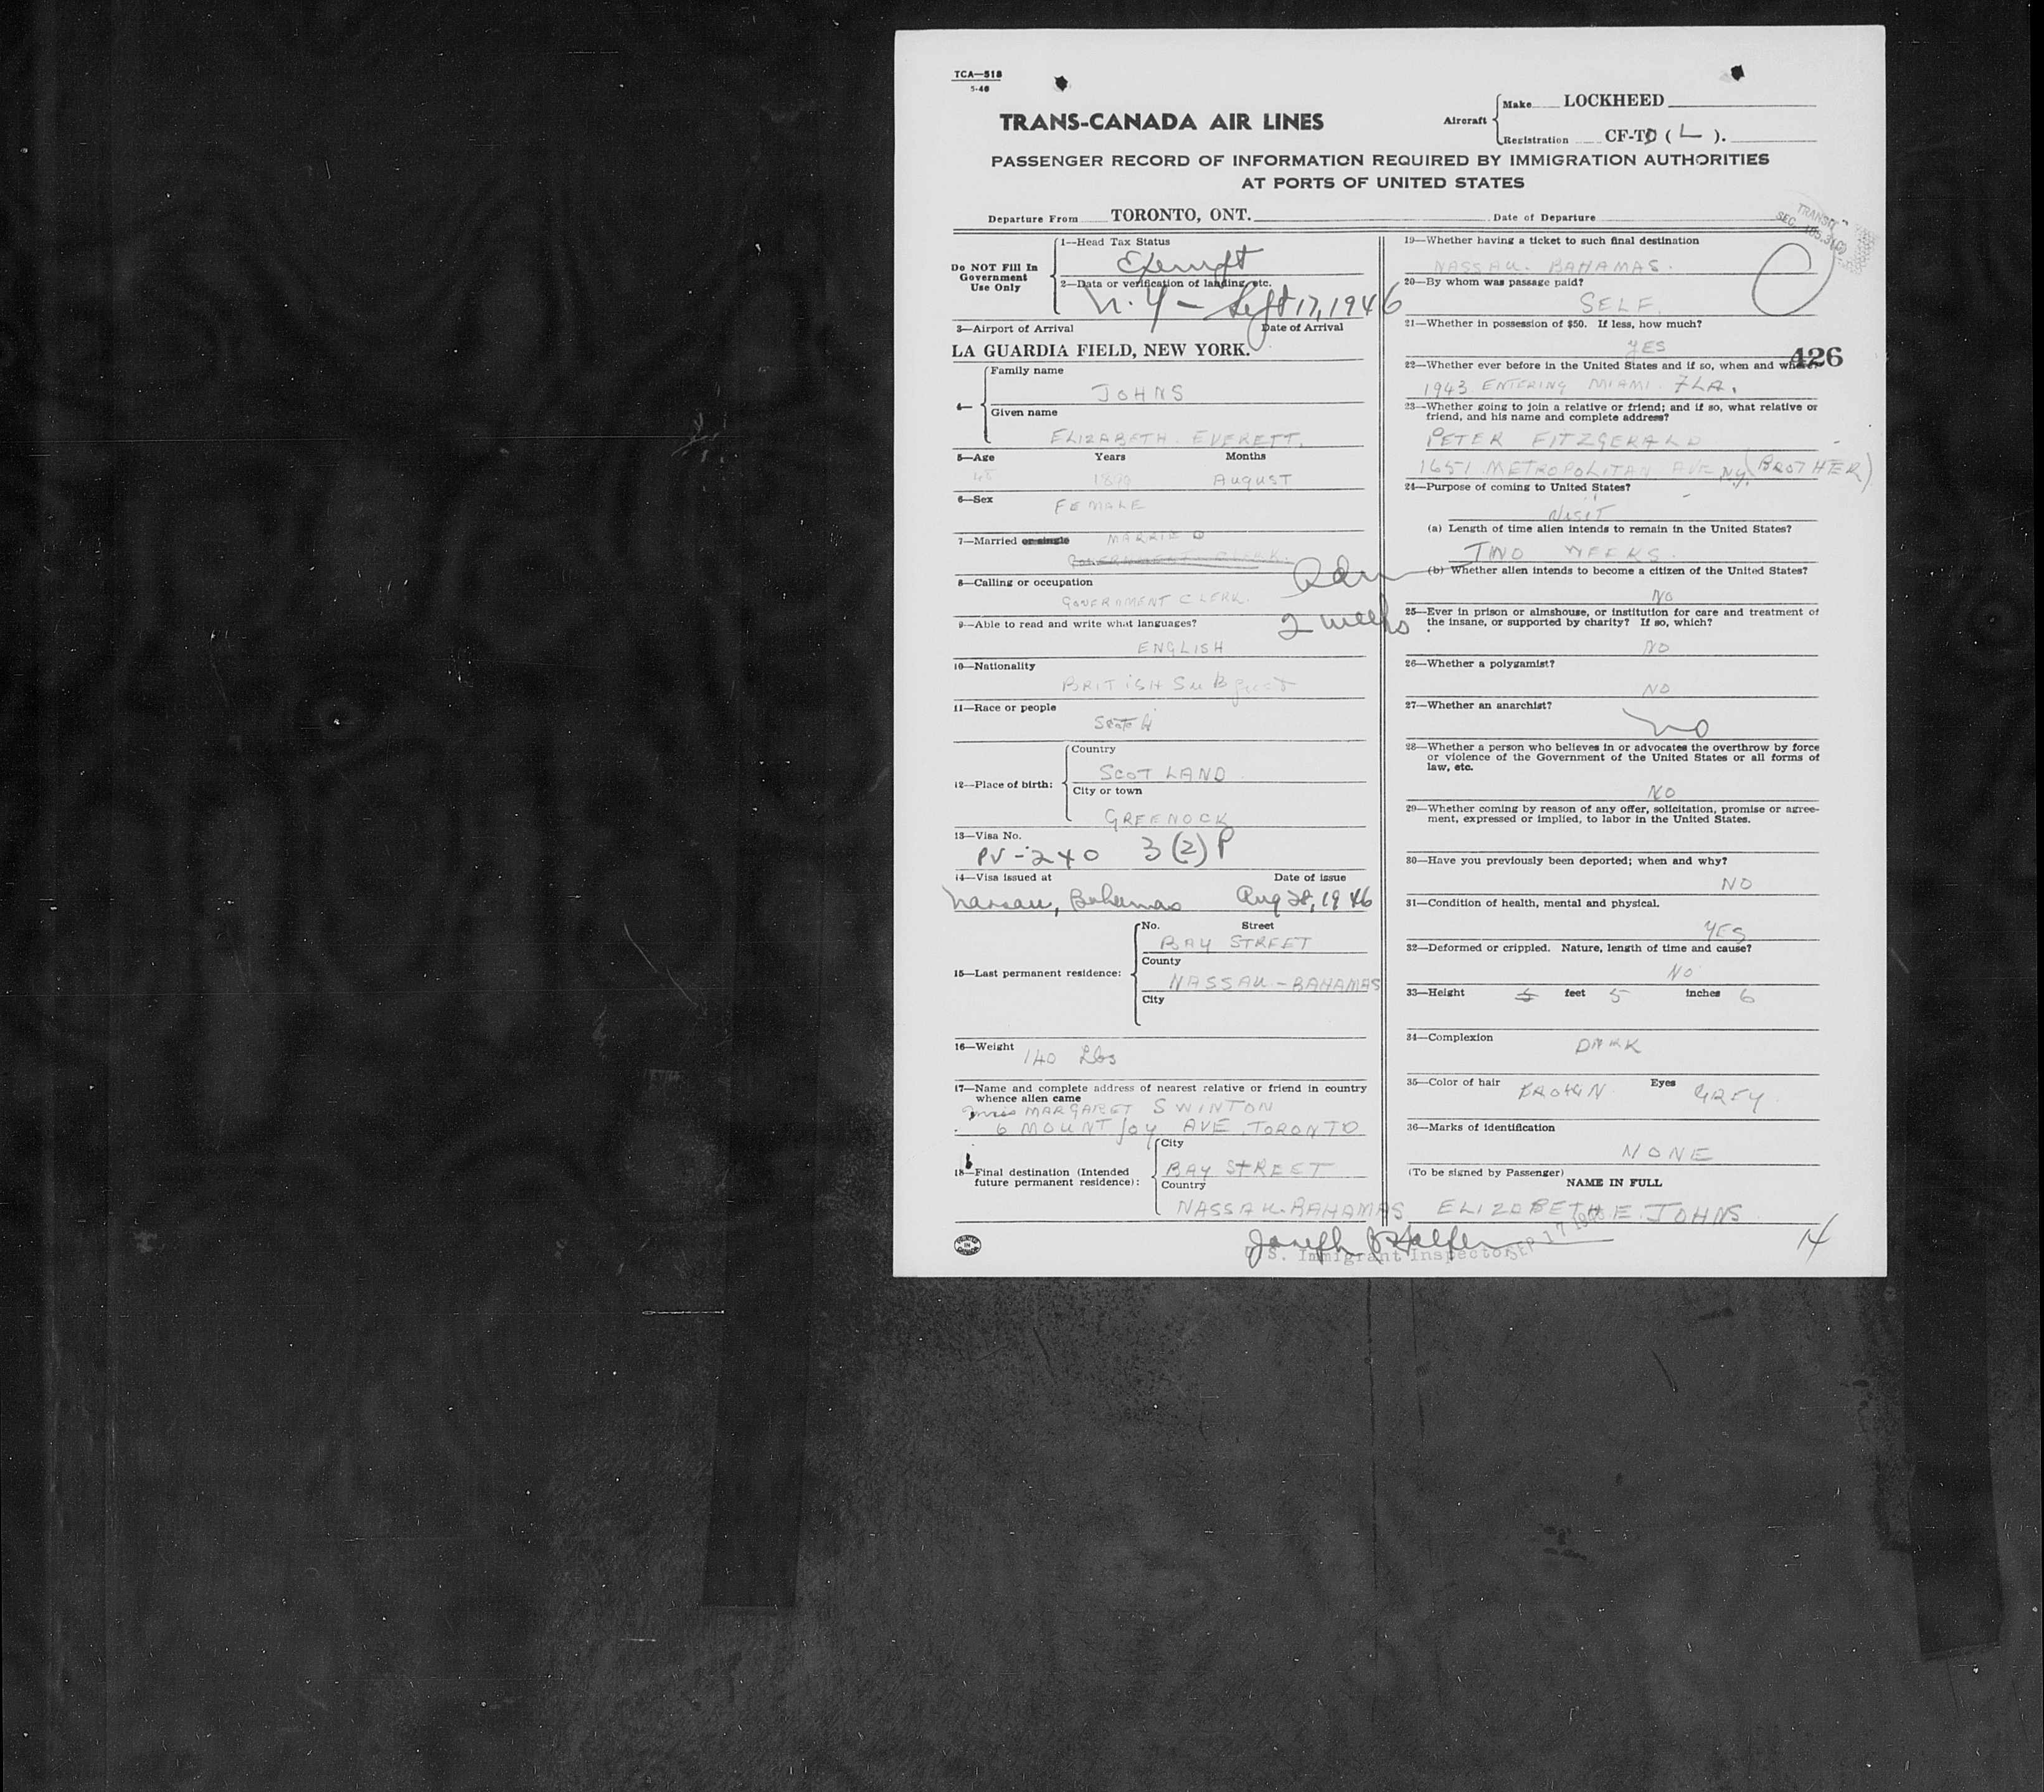 TCA—518
5-46
TRANS-CANADA AIR LINES
Aircraft
Make LOCKHEED
Registration CF-TD ( L ).
PASSENGER RECORD OF INFORMATION REQUIRED BY IMMIGRATION AUTHORITIES
AT PORTS OF UNITED STATES
Departure From TORONTO, ONT. Date of Departure
TRANSIT
SEC.
Do NOT Fill In
Government
Use Only
1—Head Tax Status
Exempt
2—Data or verification of landing, etc.
N.Y — Sept 17, 1946
3—Airport of Arrival Date of Arrival
LA GUARDIA FIELD, NEW YORK.
4—
Family name
JOHNS
Given name
ELIZABETH. EVERETT.
5—Age Years Months
1899 AUGUST
6—Sex
FEMALE
7—Married or single MARRIED
GOVERNMENT CLERK.
8—Calling or occupation
GOVERNMENT CLERK.
Adm
2 weeks
9—Able to read and write what languages?
ENGLISH
10—Nationality
BRITISH SUBject
11—Race or people
Scotch
12—Place of birth:
Country
SCOTLAND
City or town
GREENOCK
13—Visa No.
PV-240 3(2)P
14—Visa issued at Date of issue
Nassau, Bahamas Aug 28, 1946
15—Last permanent residence:
No. Street
BAY STREET
County
NASSAU - BAHAMAS
City
16—Weight 140 Lbs
17—Name and complete address of nearest relative or friend in country
whence alien came
Miss MARGARET SWINTON
6 MOUNTJOY AVE. TORONTO
18—Final destination (Intended
future permanent residence):
City
BAY STREET
Country
NASSAU. BAHAMAS
19—Whether having a ticket to such final destination
NASSAU. BAHAMAS.
20—By whom was passage paid?
SELF.
21—Whether in possession of $50. If less, how much?
YES
426
22—Whether ever before in the United States and if so, when and where?
1943 ENTERING MIAMI. FLA.
23—Whether going to join a relative or friend; and if so, what relative or
friend, and his name and complete address?
PETER FITZGERALD
1651 METROPOLITAN AVE N.Y. (BROTHER)
24—Purpose of coming to United States?
Visit
(a) Length of time alien intends to remain in the United States?
TWO WEEKS.
(b) Whether alien intends to become a citizen of the United States?
NO
25—Ever in prison or almshouse, or institution for care and treatment of
the insane, or supported by charity? If so, which?
NO
26—Whether a polygamist?
NO
27—Whether an anarchist?
no
28—Whether a person who believes in or advocates the overthrow by force
or violence of the Government of the United States or all forms of
law, etc.
NO
29—Whether coming by reason of any offer, solicitation, promise or agree-
ment, expressed or implied, to labor in the United States.
30—Have you previously been deported; when and why?
NO
31—Condition of health, mental and physical.
YES
32—Deformed or crippled. Nature, length of time and cause?
NO
33—Height 5 feet 5 inches 6
34—Complexion DARK
35—Color of hair BROWN Eyes GREY
36—Marks of identification
NONE
(To be signed by Passenger)
NAME IN FULL
ELIZABETH E. JOHNS
PRINTED IN CANADA
Joseph B Halfer
U. S. Immigrant Inspector SEP 17 1946
14